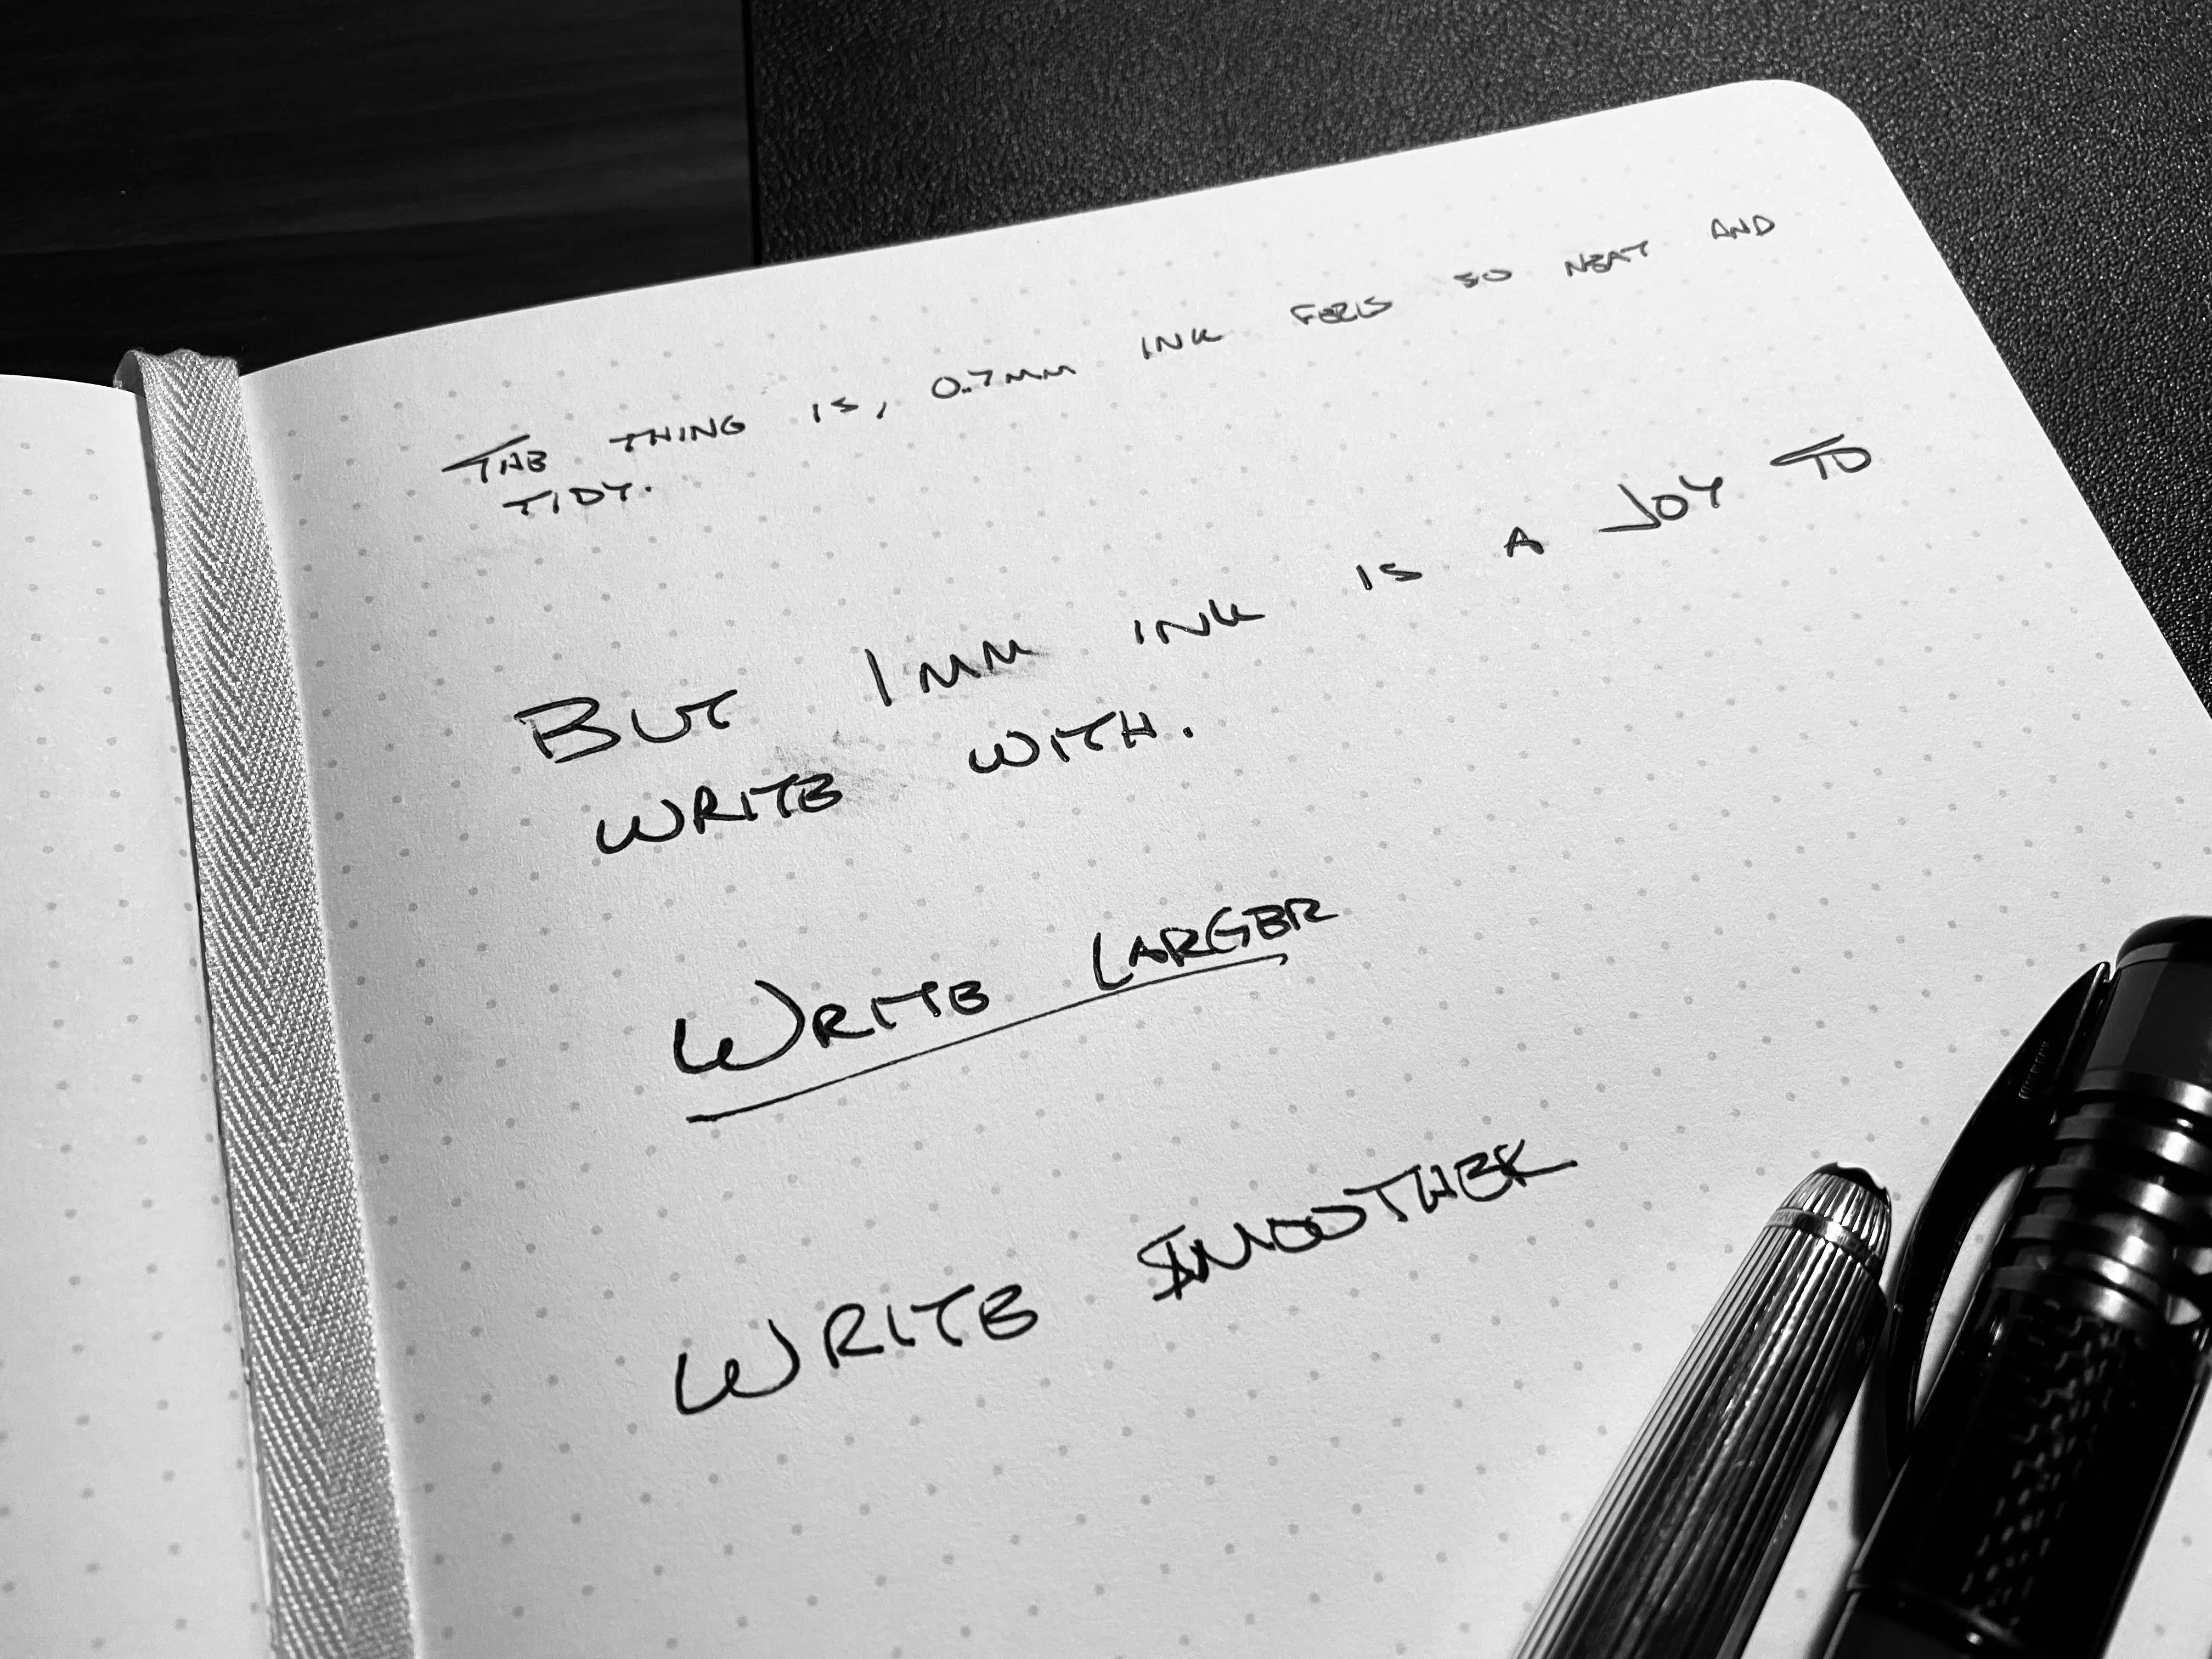 THE THING IS, 0.7MM INK FEELS SO NEAT AND
TIDY.
BUT 1MM INK IS A JOY TO
WRITE WITH.
WRITE LARGER
WRITE SMOOTHER